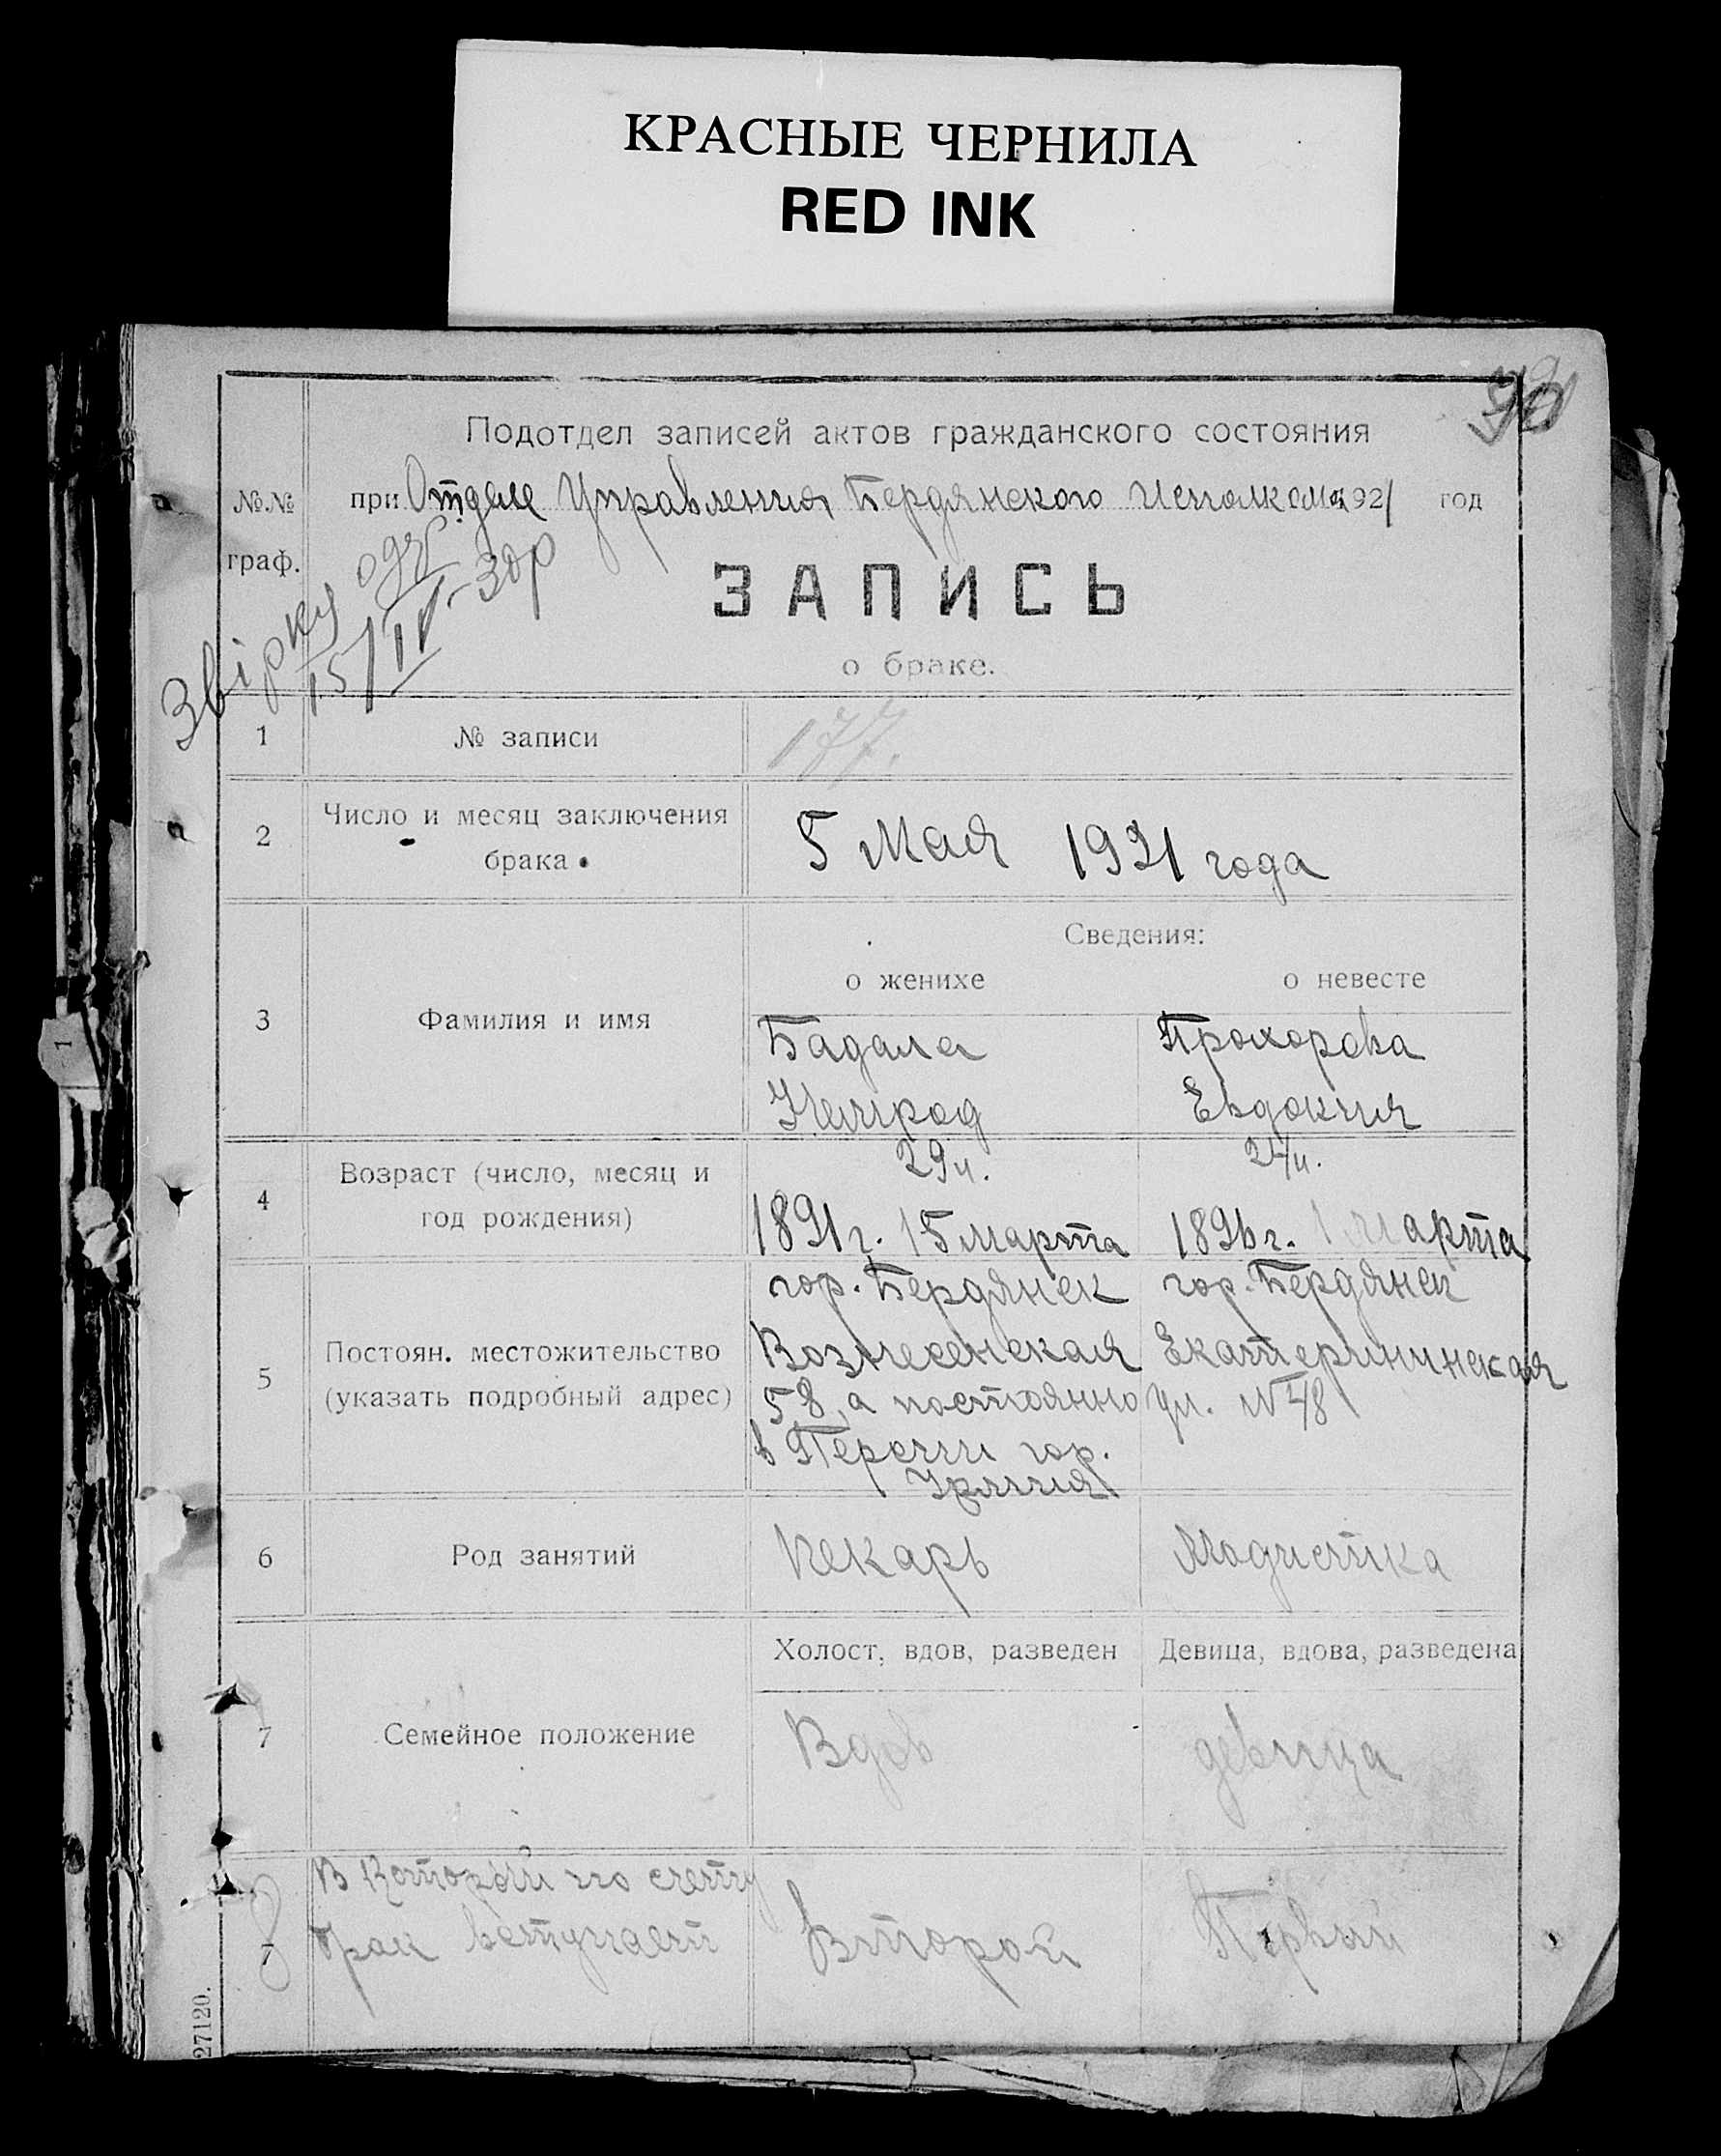 КРАСНЫЕ ЧЕРНИЛА
RED INK
Подотдел записей актов гражданского состояния
№.№ граф.
при Отделе Управления Бердянского Исполкома 1921 год
Звірку одр
15/IV-30р
ЗАПИСЬ
о браке.
1 № записи 177.
2 Число и месяц заключения брака 5 Мая 1921 года
Сведения:
о женихе о невесте
3 Фамилия и имя
Бадала Прохорова
Евдокия
29 л. 24 л.
4 Возраст (число, месяц и год рождения)
1891 г. 15 марта 1896 г. 1 марта
5 Постоян. местожительство
(указать подробный адрес)
гор. Бердянск гор. Бердянск
Вознесенская Екатерининская
58, а постоянно ул. № 48
в Персии гор.
6 Род занятий Пекарь Модистка
Холост, вдов, разведен Девица, вдова, разведена
7 Семейное положение Вдов девица
8 В который по счету
брак вступает Второй Первый
27120.
1